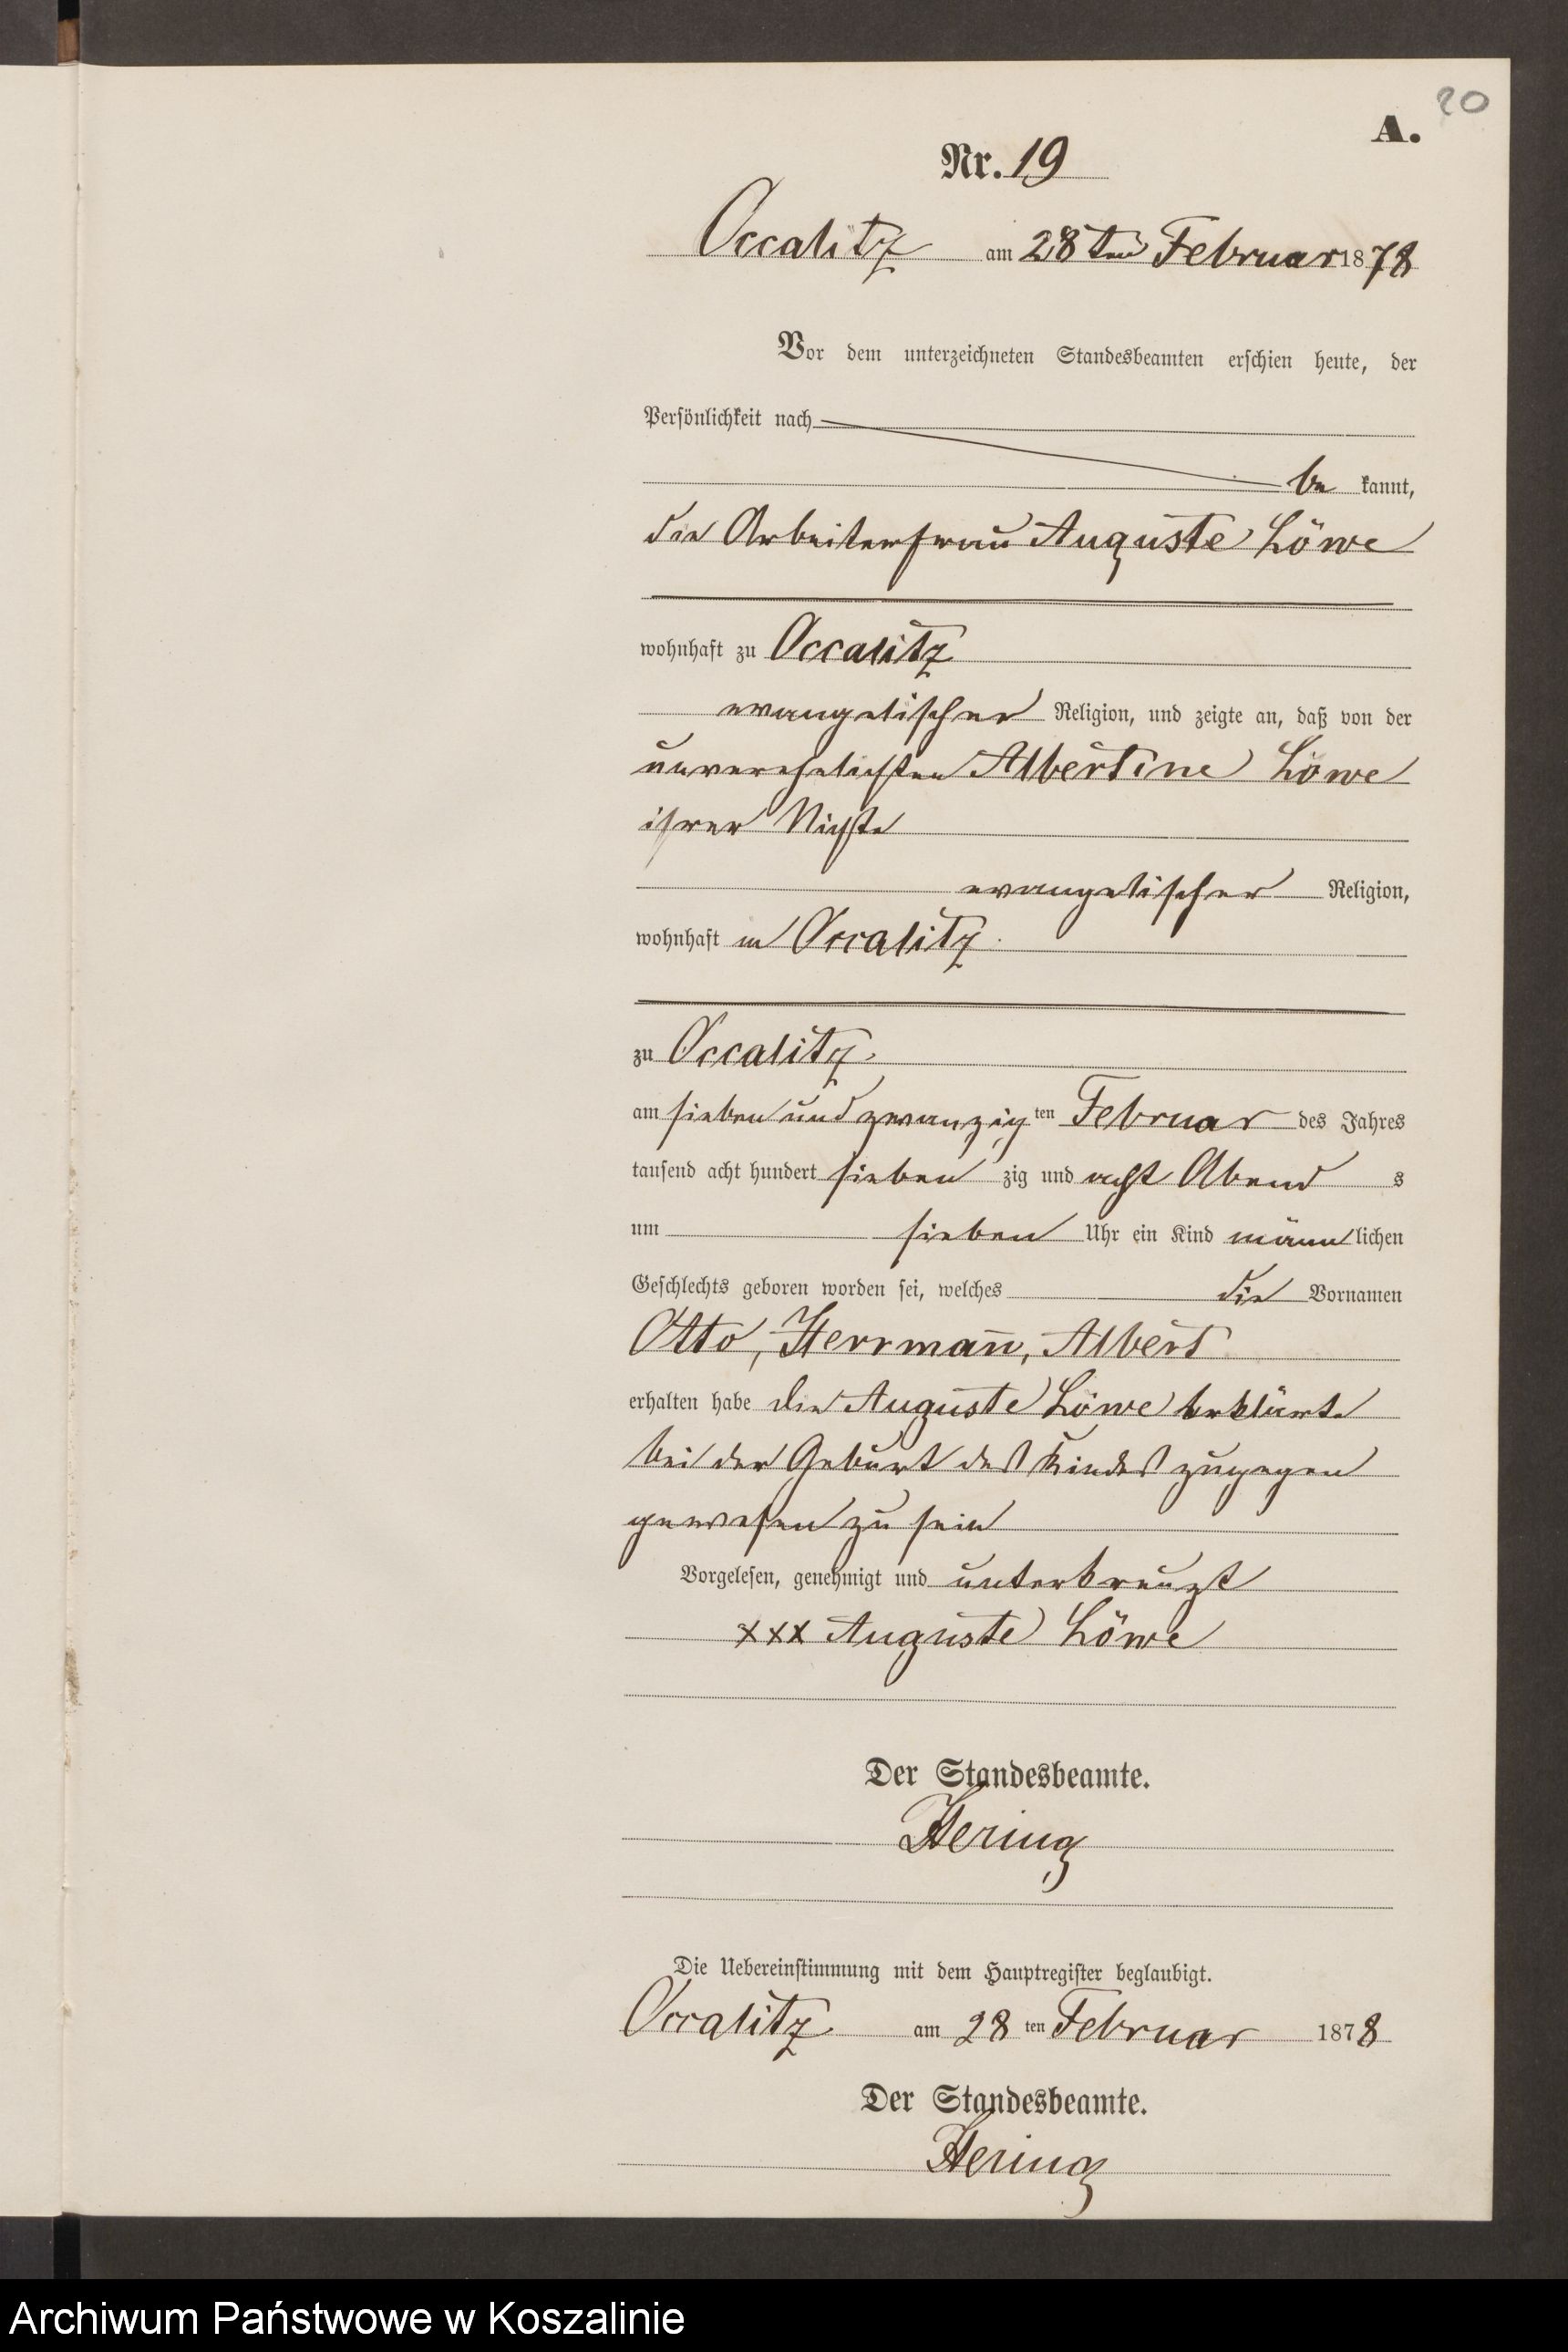 20
A.
Nr. 19
Occalitz am 28ten Februar 1878
Vor dem unterzeichneten Standesbeamten erschien heute, der
Persönlichkeit nach
be kannt,
die Arbeiterfrau Auguste Löwe
wohnhaft zu Occalitz
evangelischer Religion, und zeigte an, daß von der
unverehelichten Albertine Löwe
ihrer Nichte
evangelischer Religion,
wohnhaft in Occalitz.
zu Occalitz.
am sieben und zwanzig ten Februar des Jahres
tausend acht hundert sieben zig und acht Abend s
um sieben Uhr ein Kind männ lichen
Geschlechts geboren worden sei, welches die Vornamen
Otto, Herrmann̄, Albert
erhalten habe die Auguste Löwe erklärte
bei der Geburt des Kindes zugegen
gewesen zu sein
Vorgelesen, genehmigt und unterkreuzt
xxx Auguste Löwe
Der Standesbeamte.
Hering
Die Uebereinstimmung mit dem Hauptregister beglaubigt.
Occalitz am 28 ten Februar 1878
Der Standesbeamte.
Hering
Archiwum Państwowe w Koszalinie